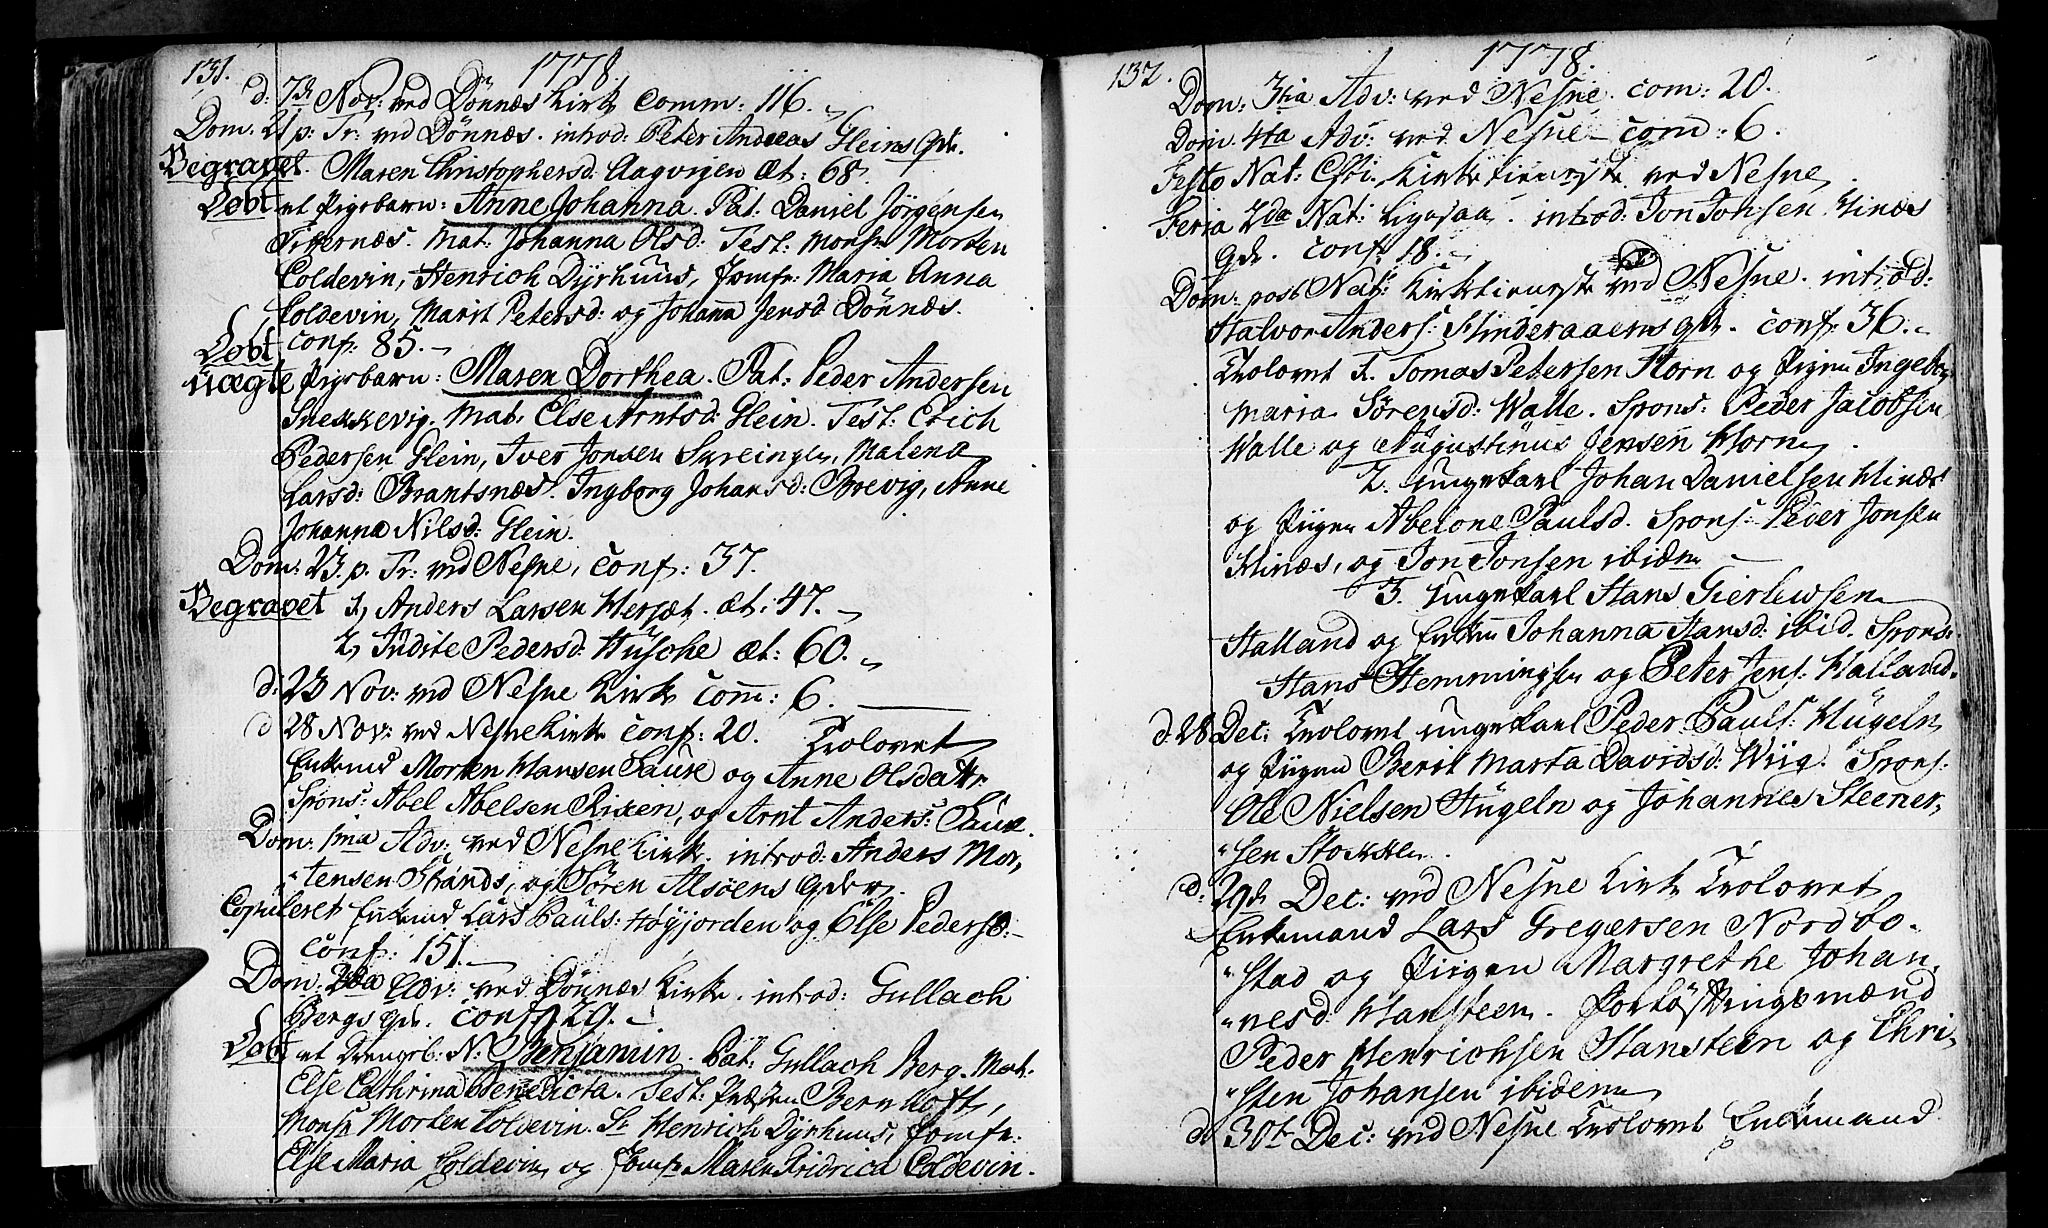 131. 1778.
d: 7de Nov: ved Dönnes Kirke comm: 116.
Dom. 21 p: Tr: ved Dönnæs. introd: Peter Andreas Gleins qde.
Begravet. Maren Christophersd: Aagvigen Æt: 68.
Döbt et Pigebarn: Anne Johanna. Pat: Daniel Jörgensen
mat: Johanna Olsd: Test: Monsr Morten
Coldevin, Henrich Dyrhuus, Jomfr: Maria Anna
Coldevin, Marit Petersd: og Johanna Jensd Dönnæs.
conf: 85.
Döbt
uægte Pigebarn: Maren Dorthea. Pat: Peder Andersen
Snekkevig. Mat: Else Arntsd: Glein. Test: Erich
Pedersen Glein, Iver Jonsen Svreinge, Malena
Larsd: Brantsnæs. Ingborg Johansd: Brevig, Anne
Johanna Nilsd: Glein.
Dom: 23. p. Tr: ved Nesne, conf: 37.
Begravet 1, Anders Larsen Hersæt. æt: 47.
2, Judite Pedersd: Husbye æt: 60.
d: 23 Nov: ved Nesne Kirke com: 6.
d 28 Nov: ved Nesne Kirke conf: 20. Trolovet
Enkemd Morten Hansen Saura og Anne Olsdatr
Spons: Abel Abelsen Rixen, og Arnt Anders: Saura.
Dom: 1ma Adv: ved Nesne Kirke. introd: Anders Mor,
"tensen Strands, og Sören Alsöens qder.
Copuleret Enkemd Lars Pauls: Högjorden og Else Pedersd:
conf: 151.
Dom: 2da Adv: ved Dönnæs Kirke. introd: Gullach
Bergs qde. conf: 129.
Döbt et Drengeb: N: Benjamin. Pat: Gullach Berg. Mat:
Else Cathrina Benedicta. Test: Præsten Bernhoft,
Monsr Morten Coldevin. Sr Henrich Dyrhuus, Jomfr:
Else Maria Coldevin og Jomfr Maren Fridrica Coldevin.
132. 1778.
Dom: 3tia Adv: ved Nesne. com: 20.
Dom: 4ta Adv: ved Nesne com: 6.
Festo Nat: Csti. Kirketieneste ved Nesne
Feria 2da Nat: Ligesaa. introd: Jon Jonsen Hinæs
qde. conf: 18.
Dom: post Nat: Kirketieneste ved Nesne. introd:
Halvor Anders: Hinderaaens qde. conf: 36.
Trolovet 1. Tomas Petersen Horn og Pigen Ingebor
Maria Sörensd: Walle. Spons: Peder Jacobsen
Walle og Augustinus Jensen Horn.
2. Ungekarl Johan Danielsen Hinæs
og Pigen Abelone Paulsd. Spons: Peder Jonsen
Hinæs, og Jon Jonsen ibidem
3. Ungekarl Hans Gierlewsen
Halland og Enken Johanna Hansd: ibid. Spons:
Hans Hemmingsen og Peter Jens: Halland.
d. 28 Dec: Trolovet Ungekarl Peder Pauls: Hugeln
og Pigen Berit Marta Davidsd: Wiig. Spons:
Ole Nielsen Hugeln og Johannes Steener,
"sen Stokklen.
d. 29de Dec: ved Nesne Kirke Trolovet
Enkemand Lars Gregersen Nordbo-
"stad og Pigen Margrethe Johan,
"nesd Hansteen. Forlöftningsmænd
Peder Henrichsen Hansteen og Chri,
"sten Johansen ibidem
d 30t Dec: ved Nesne Trolovet Enkemand